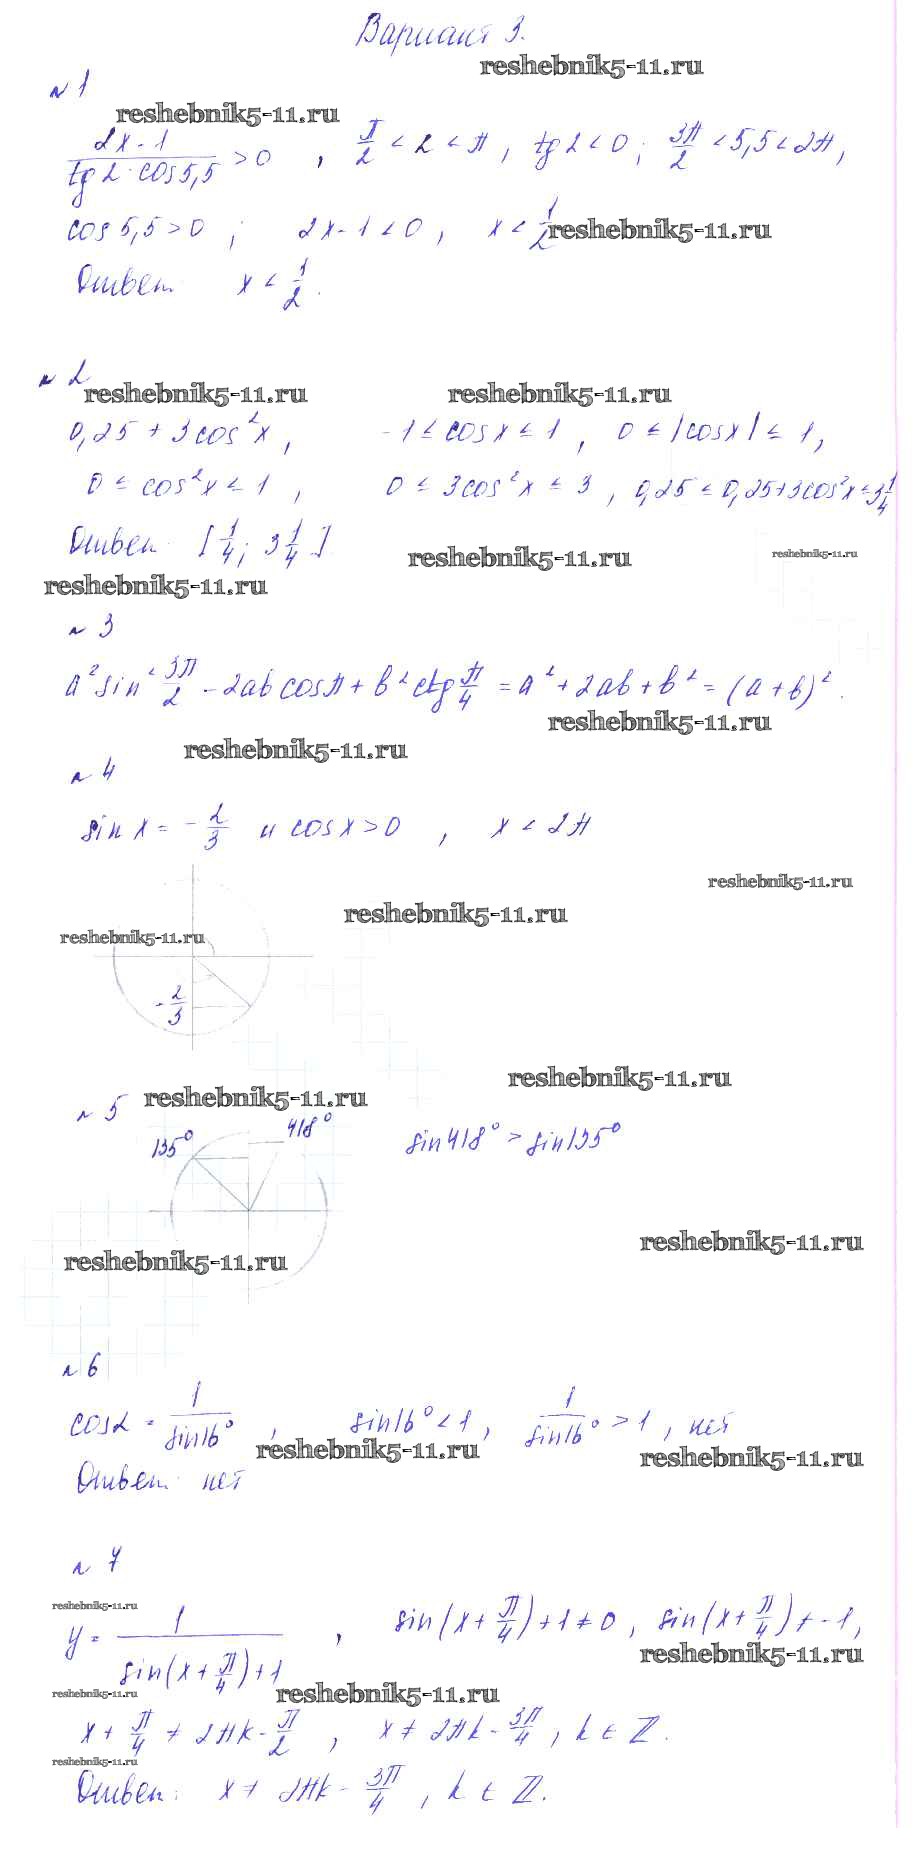 Вариант 3.
reshebnik5-11.ru
№ 1
reshebnik5-11.ru
(2x-1)/(tg 2 · cos 5,5) > 0 , π/2 < 2 < π , tg 2 < 0 ; 3π/2 < 5,5 < 2π ,
cos 5,5 > 0 ; 2x-1 < 0 , x < 1/2 reshebnik5-11.ru
Ответ x < 1/2 .
№ 2
reshebnik5-11.ru reshebnik5-11.ru
0,25 + 3cos²x , -1 ≤ cos x ≤ 1 , 0 ≤ |cos x| ≤ 1 ,
0 ≤ cos²x ≤ 1 , 0 ≤ 3cos²x ≤ 3 , 0,25 ≤ 0,25+3cos²x ≤ 3 1/4
Ответ [1/4 ; 3 1/4]
reshebnik5-11.ru reshebnik5-11.ru
reshebnik5-11.ru
№ 3
a² sin² 3π/2 - 2ab cos π + b² ctg π/4 = a² + 2ab + b² = (a+b)² .
reshebnik5-11.ru
reshebnik5-11.ru
№ 4
sin x = - 2/3 и cos x > 0 , x < 2π
reshebnik5-11.ru
reshebnik5-11.ru
reshebnik5-11.ru
- 2/3
reshebnik5-11.ru
№ 5 reshebnik5-11.ru
135° 418° sin 418° > sin 135°
reshebnik5-11.ru
reshebnik5-11.ru
№ 6
cos α = 1/sin 16° , sin 16° < 1 , 1/sin 16° > 1 , нет
reshebnik5-11.ru reshebnik5-11.ru
Ответ нет
№ 7
reshebnik5-11.ru
y = 1/(sin(x + π/4) + 1) , sin(x + π/4) + 1 ≠ 0 , sin(x + π/4) ≠ -1 ,
reshebnik5-11.ru
reshebnik5-11.ru reshebnik5-11.ru
x + π/4 ≠ 2πk - π/2 , x ≠ 2πk - 3π/4 , k ∈ Z .
reshebnik5-11.ru
Ответ: x ≠ 2πk - 3π/4 , k ∈ Z .